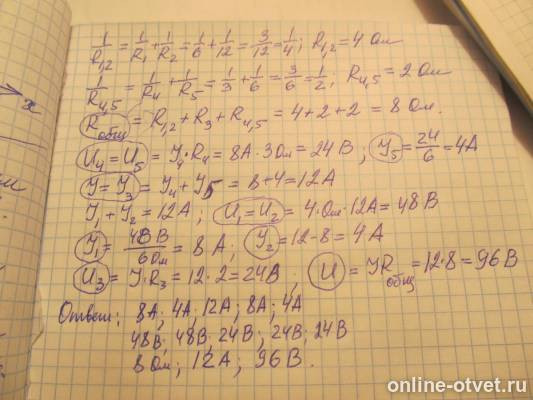 1/R1,2 = 1/R1 + 1/R2 = 1/6 + 1/12 = 3/12 = 1/4; R1,2 = 4 Ом
1/R4,5 = 1/R4 + 1/R5 = 1/3 + 1/6 = 3/6 = 1/2; R4,5 = 2 Ом
Rобщ = R1,2 + R3 + R4,5 = 4 + 2 + 2 = 8 Ом.
U4 = U5 = У4·R4 = 8А·3Ом = 24 В, У5 = 24/6 = 4А
У = У3 = У4 + У5 = 8 + 4 = 12А
У1 + У2 = 12А; U1 = U2 = 4·Ом·12А = 48 В
У1 = 48 В/6 Ом = 8 А; У2 = 12 - 8 = 4 А
U3 = У·R3 = 12·2 = 24В; U = УRобщ = 12·8 = 96 В
Ответ: 8А; 4А; 12А; 8А; 4А
48В; 48В; 24В; 24В; 24В
8 Ом; 12А; 96В.
online-otvet.ru